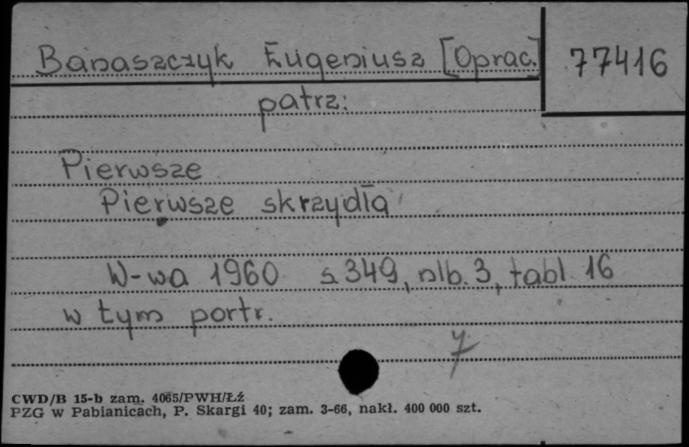 Banaszczyk Eugeniusz [Oprac.] 77416
patrz:
Pierwsze
Pierwsze skrzydła
W-wa 1960 s 349, nlb. 3, tabl 16
w tym portr.
7
CWD/B 15-b zam. 4065/PWH/Łź
PZG w Pabianicach, P. Skargi 40; zam. 3-66, nakł. 400 000 szt.